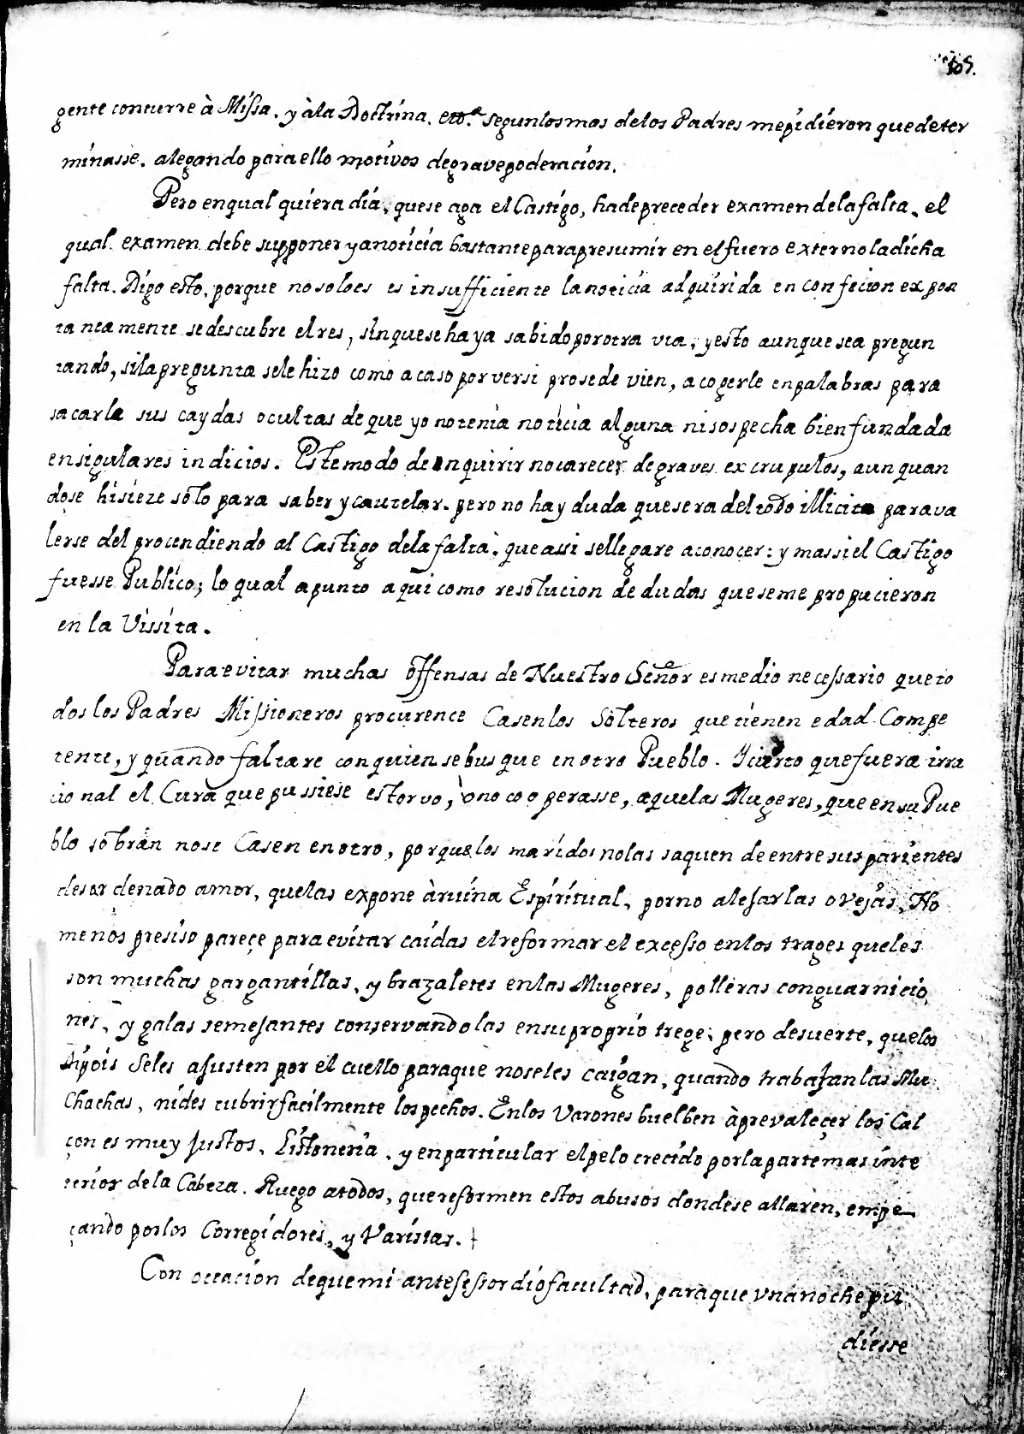 105.
gente concurre à Missa. y àla Doctrina. ett.ª segunlosmas delos Padres mepidieron quedeter
minasse. alegando paraello motivos degravepoderacion.
Pero enqual quiera dia, quese aga el Castigo, hadepreceder examen delafalta, el
qual examen debe supponer yanoticia bastanteparapresumir en elfuero externoladicha
falta. Digo esto, porque nosoloes es insufficiente lanoticia adquirida en confecion expon
taneamente sedescubre elres, sinquesehaya sabidoporotra via, yesto aunquesea pregun
tando, silapregunta sele hizo como acaso porversi prosede vien, acogerle enpalabras para
sacarle sus caydas ocultas deque yo notenia noticia alguna nisospecha bienfundada
ensigulares indicios. Estemodo de inquirir nocarecer degraves excrupulos, aunquan
dose hisieze sólo para saber ycautelar. pero no hay duda quesera deltodo illicito parava
lerse del procendiendo al Castigo delafalta. queassi sellegare aconocer: y massiel Castigo
fuesse Publico; lo qual apunto aquicomo resolucion dedudas queseme propucieron
en la Vissita.
Paraevitar muchas offensas de Nuestro Señor esmedio necessario queto
dos los Padres Missioneros procurence Casenlos Solteros quetienen edad Compe
tente, y quando faltare conquiensebusque enotro Pueblo. Y cierto quefuera irra
cional el Cura que pussiese estorvo, ò no cooperasse, aquelas Mugeres, que ensu Pue
blo sobran nose Casen enotro, porquelos maridos nolas saquen deentresusparientes
desordenado amor, quelas expone àruina Espiritual, porno alejarlas ovejas. No
menos presiso pareçe paraevitar caidas elreformar el excesso enlos trages queles
son muchas gargantillas, y brazaletes enlas Mugeres, polleras conguarnicio
nes, y galas semejantes conservandolas ensuproprio trege; pero desuerte, quelos
tipois seles ajusten por el cuello paraque noseles caigan, quando trabajanlas Mu
Chachas, nides cubrirfacilmente lospechos. Enlos Varones buelben àprevaleçer los Cal
çones muy justos, Listoneria, y enparticular elpelo crecido porlapartemasinte
terior dela Cabeza. Ruego atodos, quereformen estos abusos dondese allaren, empe
çando porlos Corregidores, y Varistas.
Con occacion dequemi antesessor diofacultad, paraque vnanoche pu
diesse